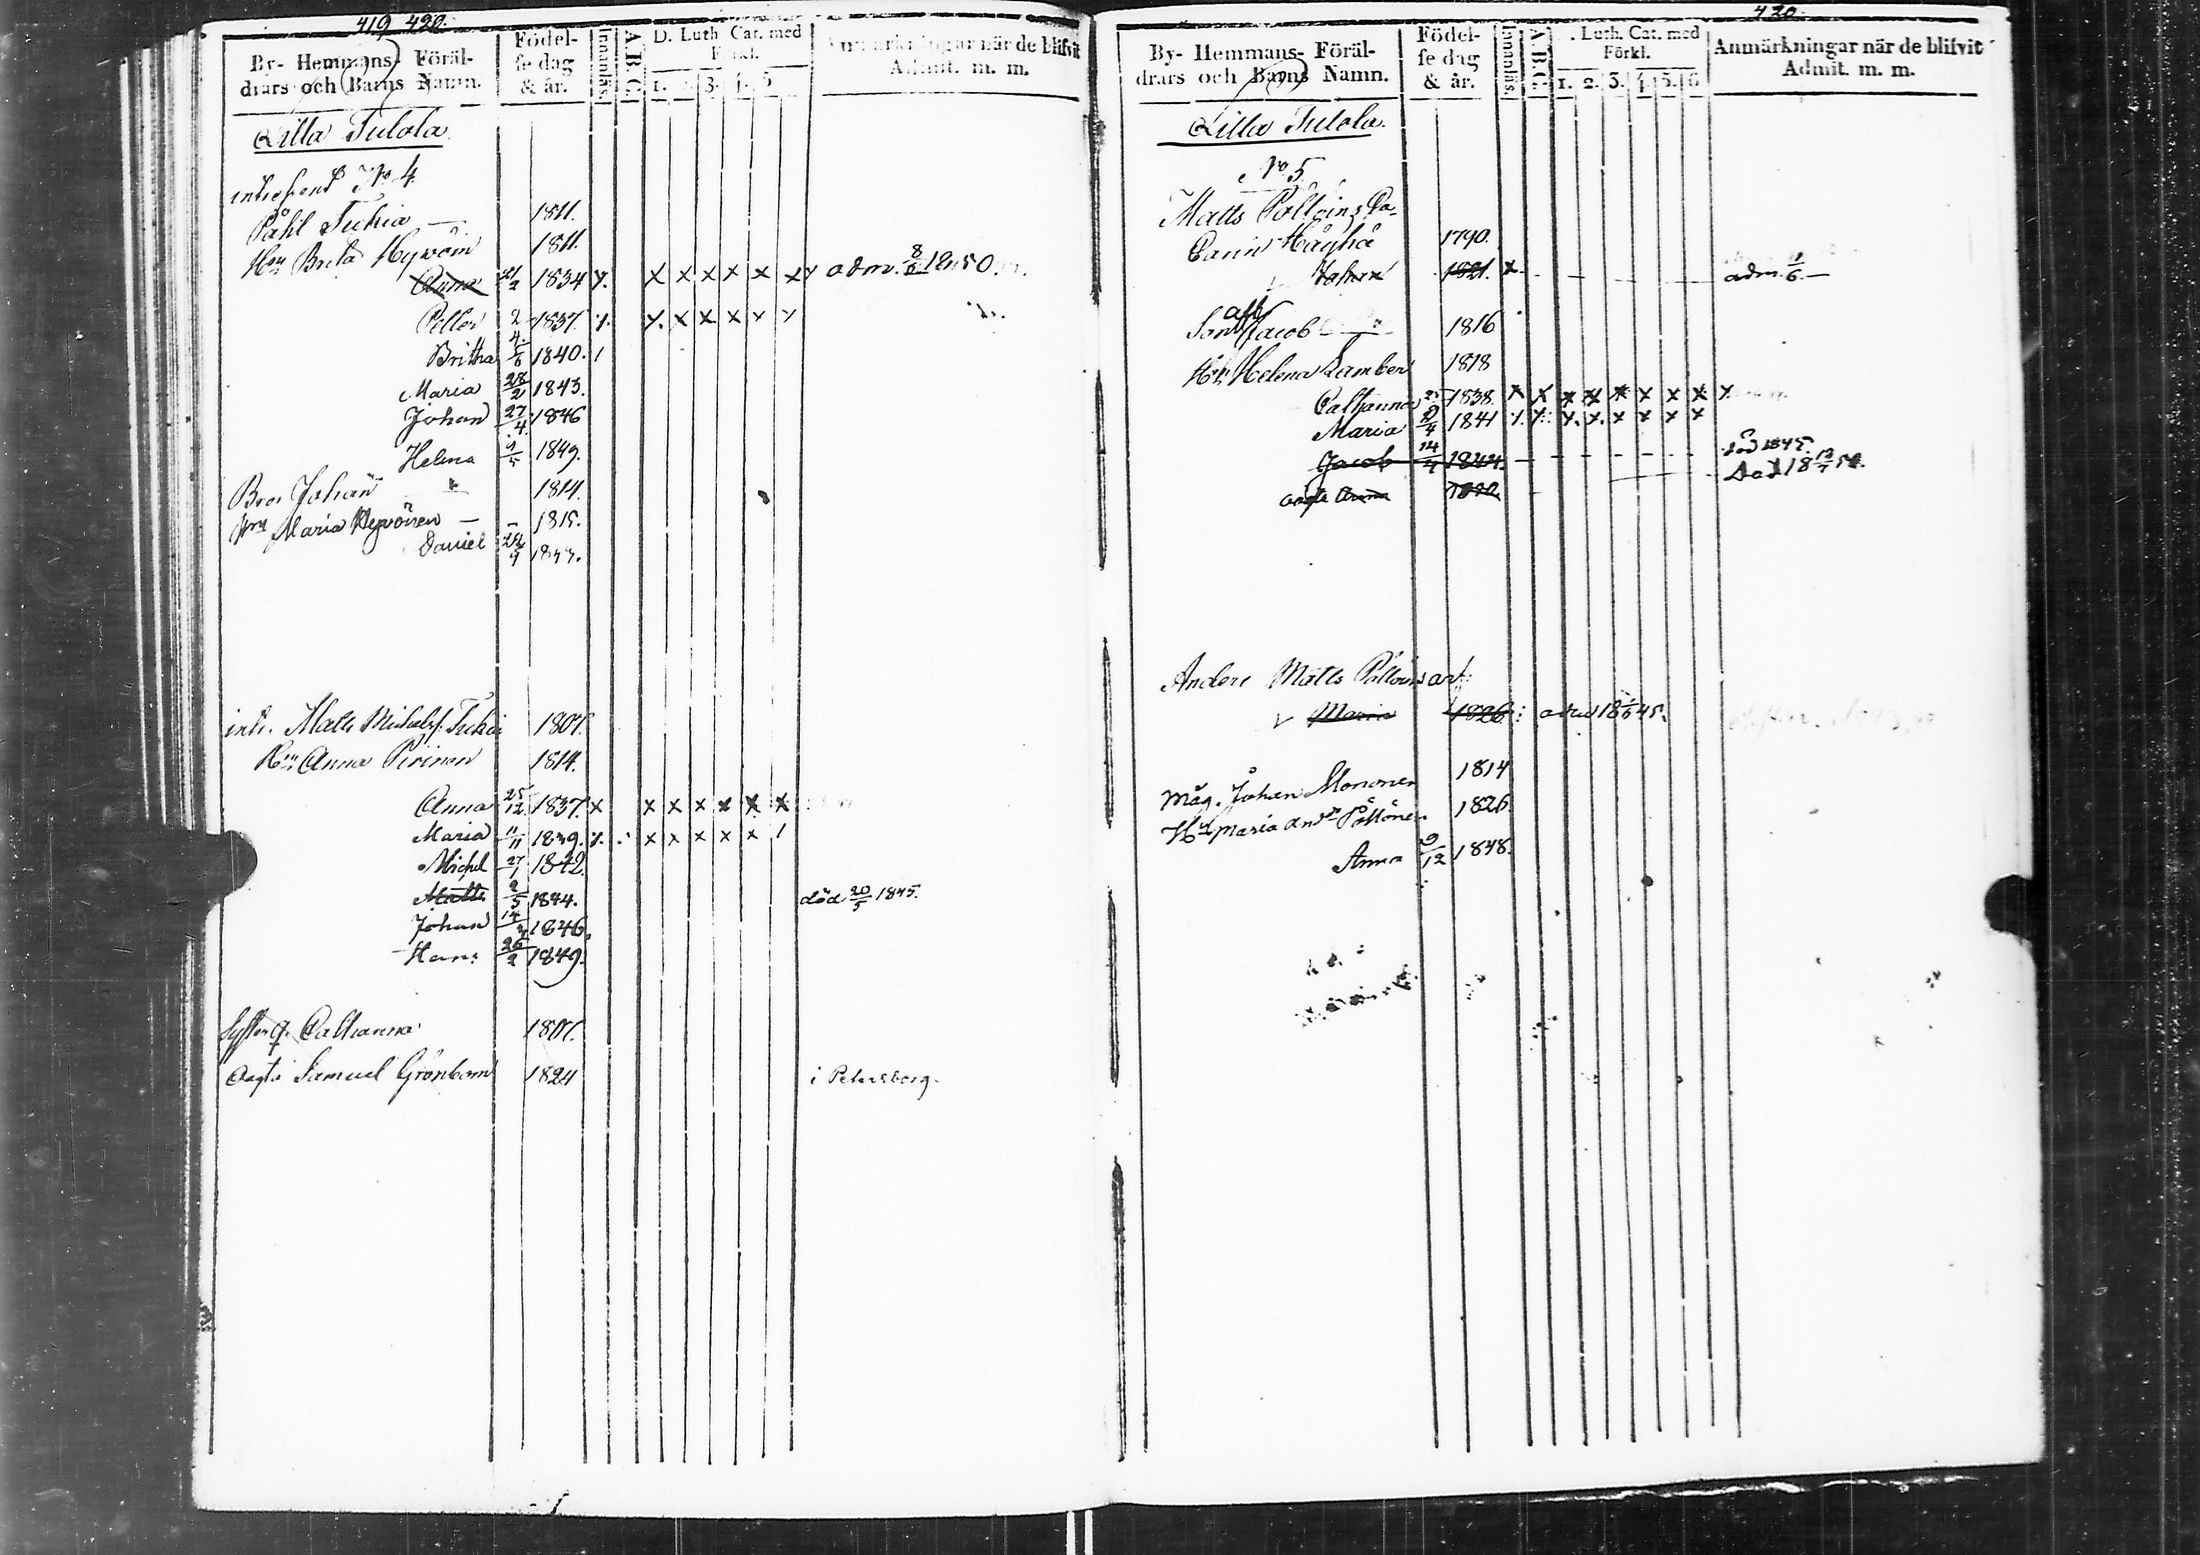 419 420.
By- Hemmans- Föräl-
drars och Barns Namn.
Födel-
se dag
& år.
Innanläs.
A.B.C.
D. Luth. Cat. med
Förkl.
1. 3. 4. 5
Anmärkningar när de blifvit
Admit. m. m.
Lilla Tulola
No 4.
Påhl Tuhia — 1811.
Hru Brita Hyvöin 1811.
Anna 21/2 1834 x x x x x x x adm. 8/6 1850.
Petter 2/4 1837. x x x x x x
Britha 5/6 1840.
Maria 28/2 1843.
Johan 27/4 1846
Helena 1849.
Bror Johan 1814.
Hru Maria Hyvönen — 1815.
Daniel
inh. Matts Michelss. Tuhia 1807.
Hru Anna Pirinen 1814.
Anna 25/12 1837. x x x x x x x
Maria 11/11 1839. x x x x x
Michel 27/1 1842.
Matts 2/5 1844. död 20/5 1845.
Johan 1846.
Hans 26/2 1849.
Catharina
Samuel Grönbom 1824 i Petersborg.
420.
By- Hemmans- Föräl-
drars och Barns Namn.
Födel-
se dag
& år.
Innanläs.
A.B.C.
. Luth. Cat. med
Förkl.
1. 2. 3. 4. 5. 6
Anmärkningar när de blifvit
Admit. m. m.
Lilla Tulola.
No 5.
Matts
Carin Häyhä 1790.
Johan 1821. x adm. 1/6 —
Son Jacob 1816
Hru Helena Lamber 1818
Catharina 1838. x x x x x x x x
Maria 1841 x x x x x
Jacob 14/4 1844. död 1845.
Anna Död 18
Anders Matts
Maria 1826
Måg. Johan Mononen 1814
Hru Maria And:dr Pöllönen 1826
Anna 9/12 1848.